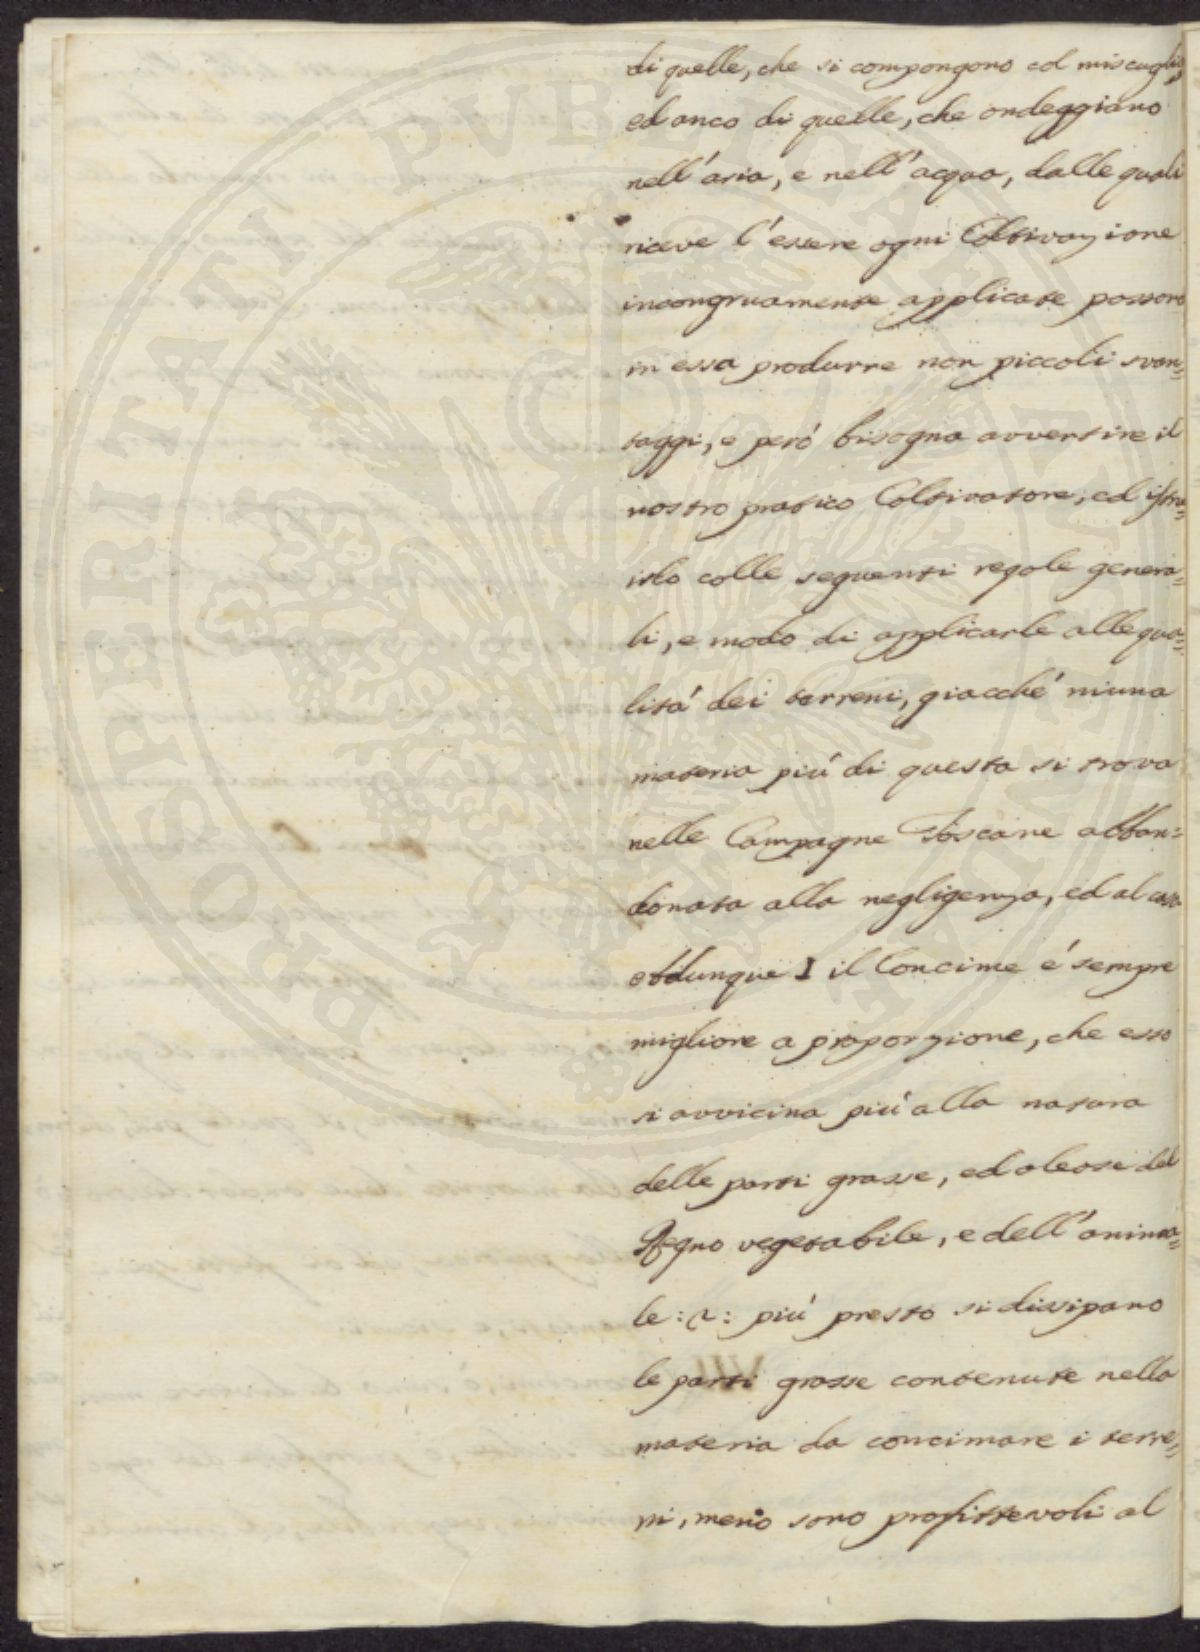 di quelle, che si compongono col miscuglio
ed anco di quelle, che ondeggiano
nell'aria, e nell'acqua, dalle quali
riceve l'essere ogni Coltivazione
incongruamente applicate possono
in essa produrre non piccoli svan=
taggi, e però bisogna avvertire il
nostro pratico Coltivatore, ed istru=
irlo colle seguenti regole genera=
li, e modo di applicarle alle qua=
lità dei terreni, giacchè niuna
materia più di questa si trova
nelle Campagne Toscane abban=
donata alla negligenza, ed al caso
Addunque 1 il Concime è sempre
migliore a proporzione, che esso
si avvicina più alla natura
delle parti grasse, ed oleose del
Regno vegetabile, e dell'anima=
le :2: più presto si dissipano
le parti grasse contenute nella
materia da concimare i terre=
ni, meno sono profittevoli al
PROSPERITATI PUBLICAE AUGENDAE